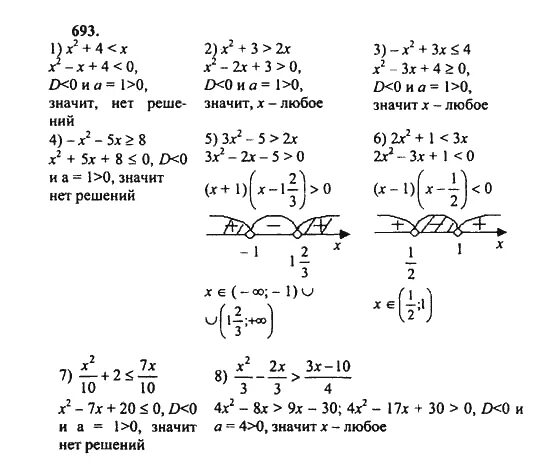 693.
1) x² + 4 < x
x² – x + 4 < 0,
D<0 и a = 1>0,
значит, нет реше-
ний
2) x² + 3 > 2x
x² – 2x + 3 > 0,
D<0 и a = 1>0,
значит, x – любое
3) – x² + 3x ≤ 4
x² – 3x + 4 ≥ 0,
D<0 и a = 1>0,
значит x – любое
4) – x² – 5x ≥ 8
x² + 5x + 8 ≤ 0, D<0
и a = 1>0, значит
нет решений
5) 3x² – 5 > 2x
3x² – 2x – 5 > 0
(x + 1)(x – 1 2/3) > 0
+ – +
– 1 1 2/3 x
x ∈ (– ∞; – 1) ∪
∪(1 2/3; +∞)
6) 2x² + 1 < 3x
2x² – 3x + 1 < 0
(x – 1)(x – 1/2) < 0
+ – +
1/2 1 x
x ∈ (1/2; 1)
7) x²/10 + 2 ≤ 7x/10
x² – 7x + 20 ≤ 0, D<0
и a = 1>0, значит
нет решений
8) x²/3 – 2x/3 > 3x – 10/4
4x² – 8x > 9x – 30; 4x² – 17x + 30 > 0, D<0 и
a = 4>0, значит x – любое